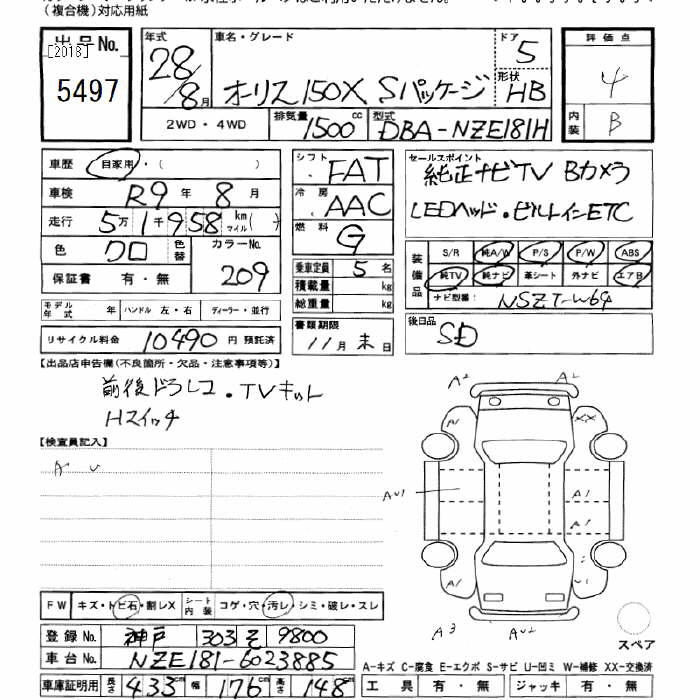 (複合機)対応用紙
出品No.
[2018]
5497
年式
28/8月
車名・グレード
オーリス 150X Sパッケージ
ドア
5
形状
HB
2WD・4WD
排気量
1500cc
型式
DBA-NZE181H
評価点
4
内装
B
車歴 自家用・( )
車検 R9年 8月
走行 5万1千958 km マイル( )
色 クロ 色替 カラーNo. 209
保証書 有・無
モデル年式 年 ハンドル 左・右 ディーラー・並行
リサイクル料金 10490 円 預託済
シフト FAT
冷房 AAC
燃料 G
乗車定員 5名
積載量 kg
総重量 kg
書類期限
11月末日
セールスポイント
純正ナビTV Bカメラ
LEDヘッド・ビルトインETC
装備品
S/R 純A/W P/S P/W ABS
純TV 純ナビ 革シート 外ナビ エアB
ナビ型番: NSZT-W64
後日品
SD
【出品店申告欄(不良箇所・欠品・注意事項等)】
前後ドラレコ・TVキット
Hスイッチ
【検査員記入】
A U
A2 A2
XX
AU1 A1
A1
A1 U1
A3 AU2
スペア
FW キズ・トビ石・割レX シート内装 コゲ・穴・汚レ・シミ・破レ・スレ
登録No. 神戸 303 そ 9800
車台No. NZE181-6023885
車庫証明用 長さ 433 幅 176 高さ 148
A-キズ C-腐食 E-エクボ S-サビ U-凹ミ W-補修 XX-交換済
工具 有・無 ジャッキ 有・無